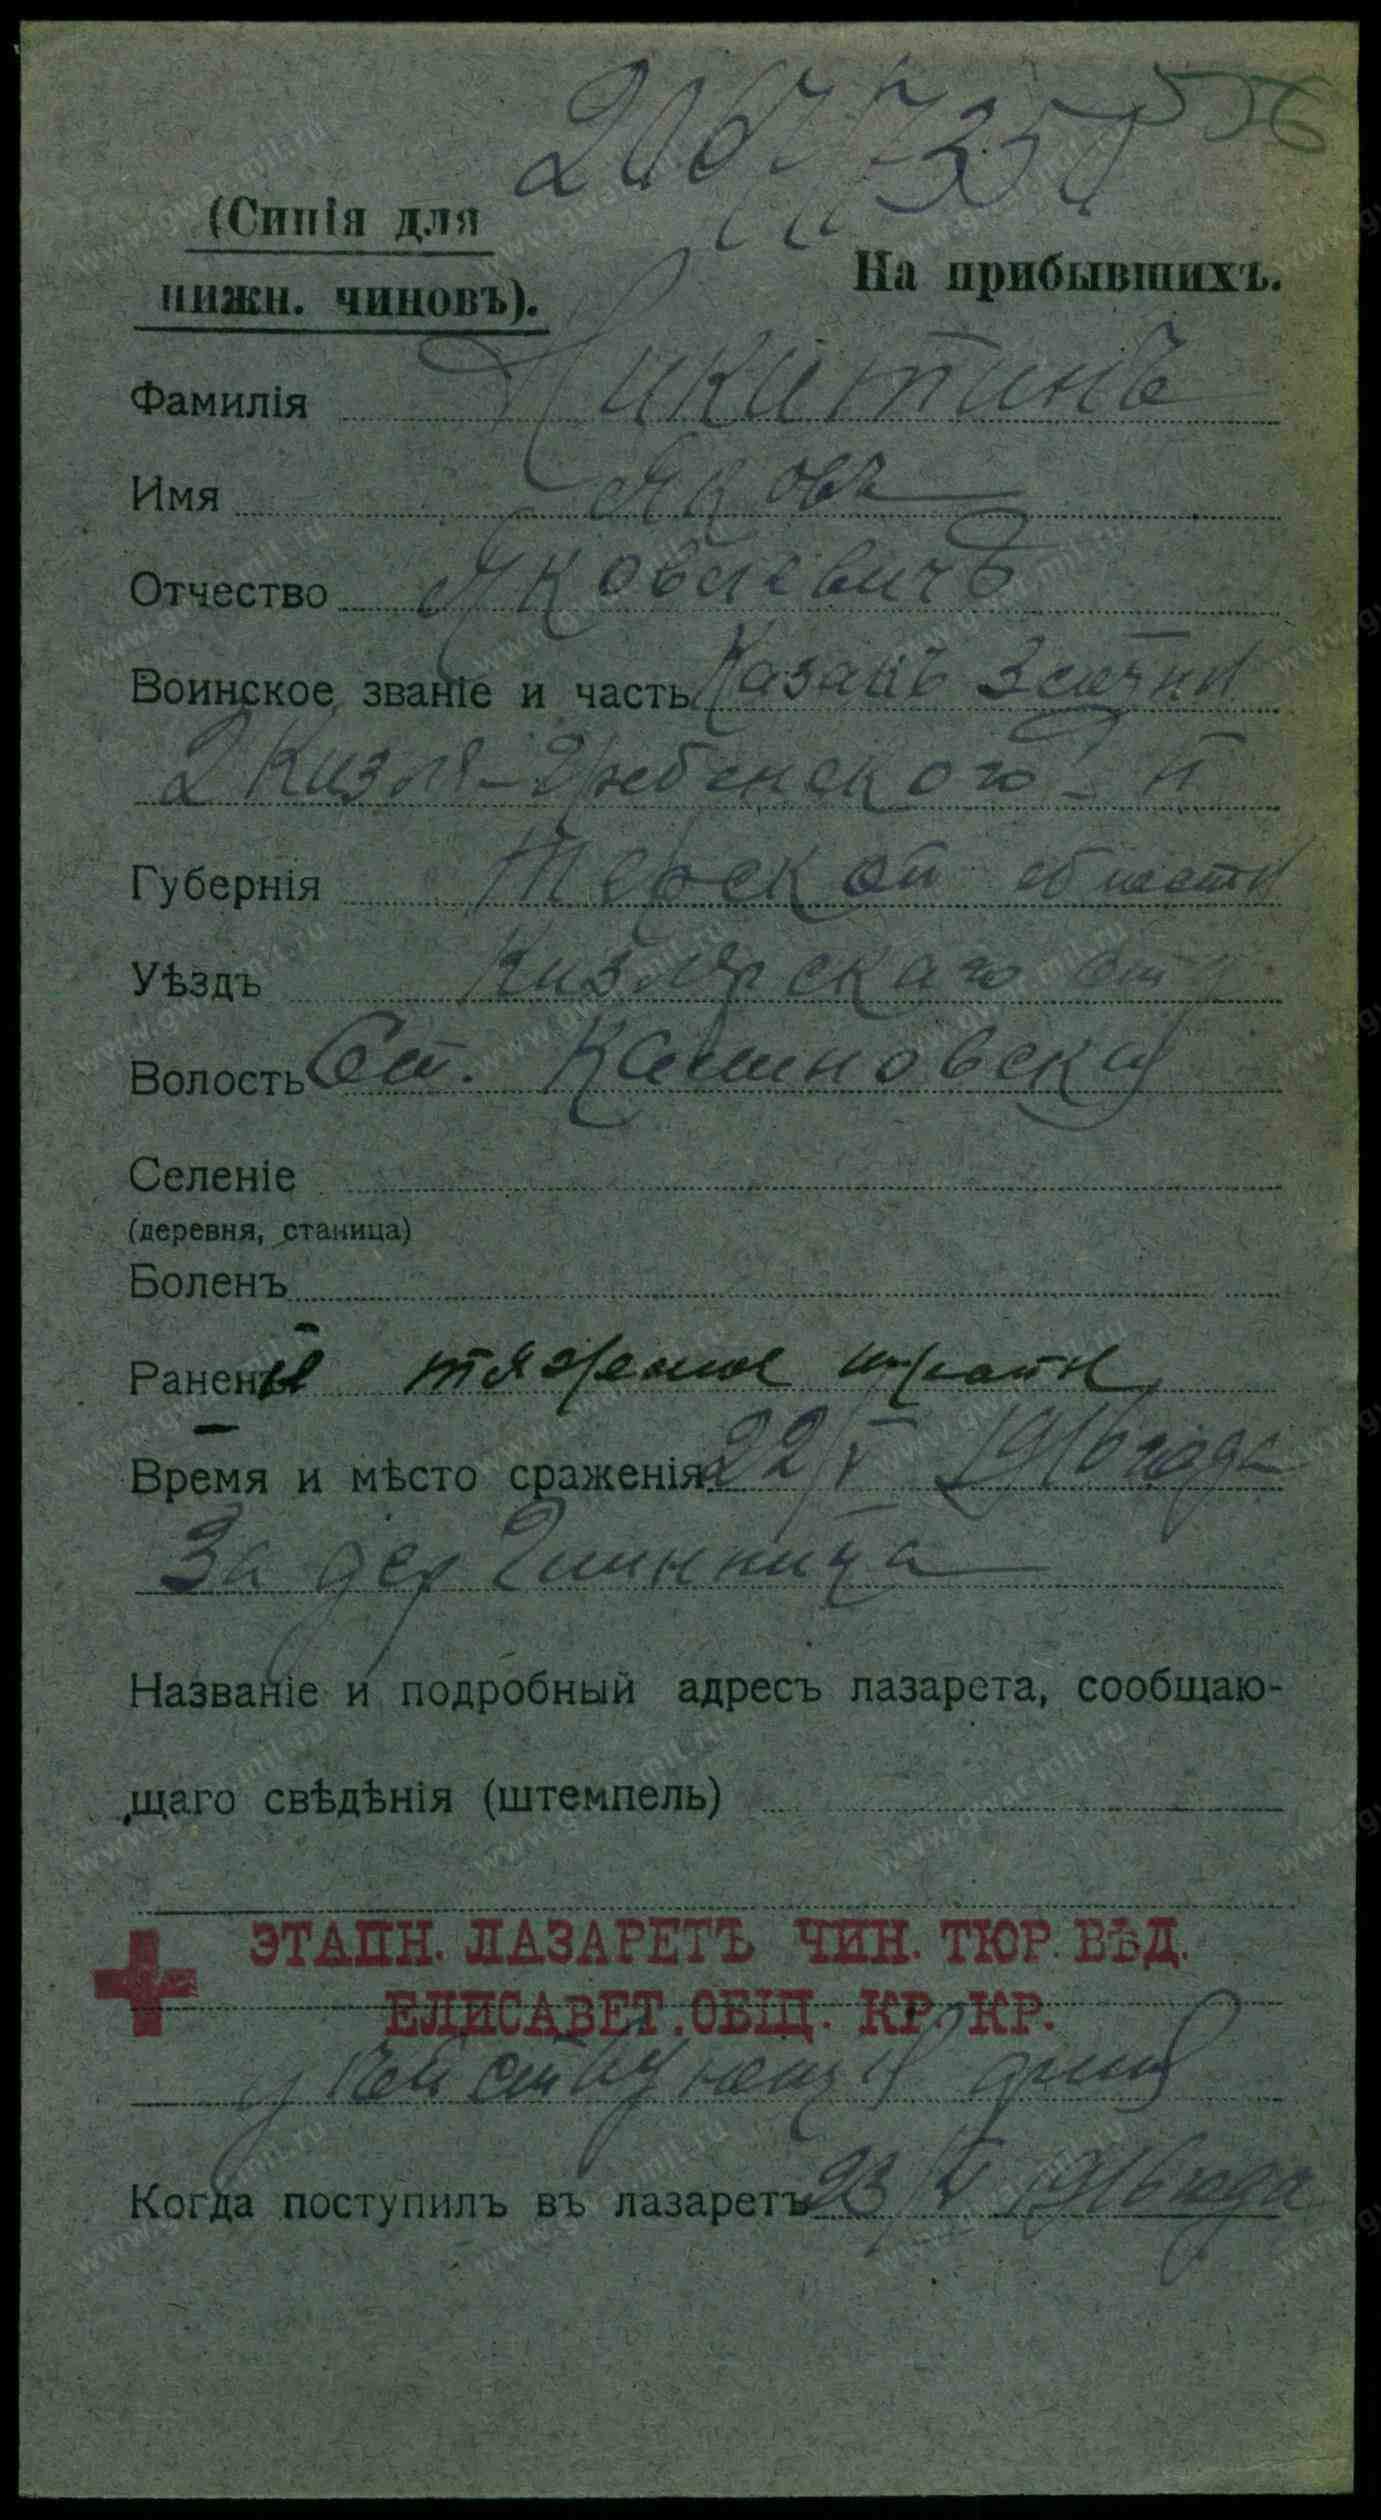 556
(Синія для
нижн. чиновъ).
На прибывшихъ.
Фамилія Никитинъ
Имя Яковъ
Отчество Яковлевичъ
Воинское званіе и часть Казакъ 3 сотни
2 Кизля-Гребенского п
Губернія Терской области
Уѣздъ Кизлярскаго от
Волость Ст. Калиновску
Селеніе
(деревня, станица)
Боленъ
Раненъ тяжело
Время и мѣсто сраженія 22/V 1916 года
За дер
Названіе и подробный адресъ лазарета, сообщаю-
щаго свѣдѣнія (штемпель)
ЭТАПН. ЛАЗАРЕТЪ ЧИН. ТЮР. ВѢД.
ЕЛИСАВЕТ. ОБЩ. КР. КР.
Когда поступилъ въ лазаретъ 23/V 1916 года
www.gwar.mil.ru